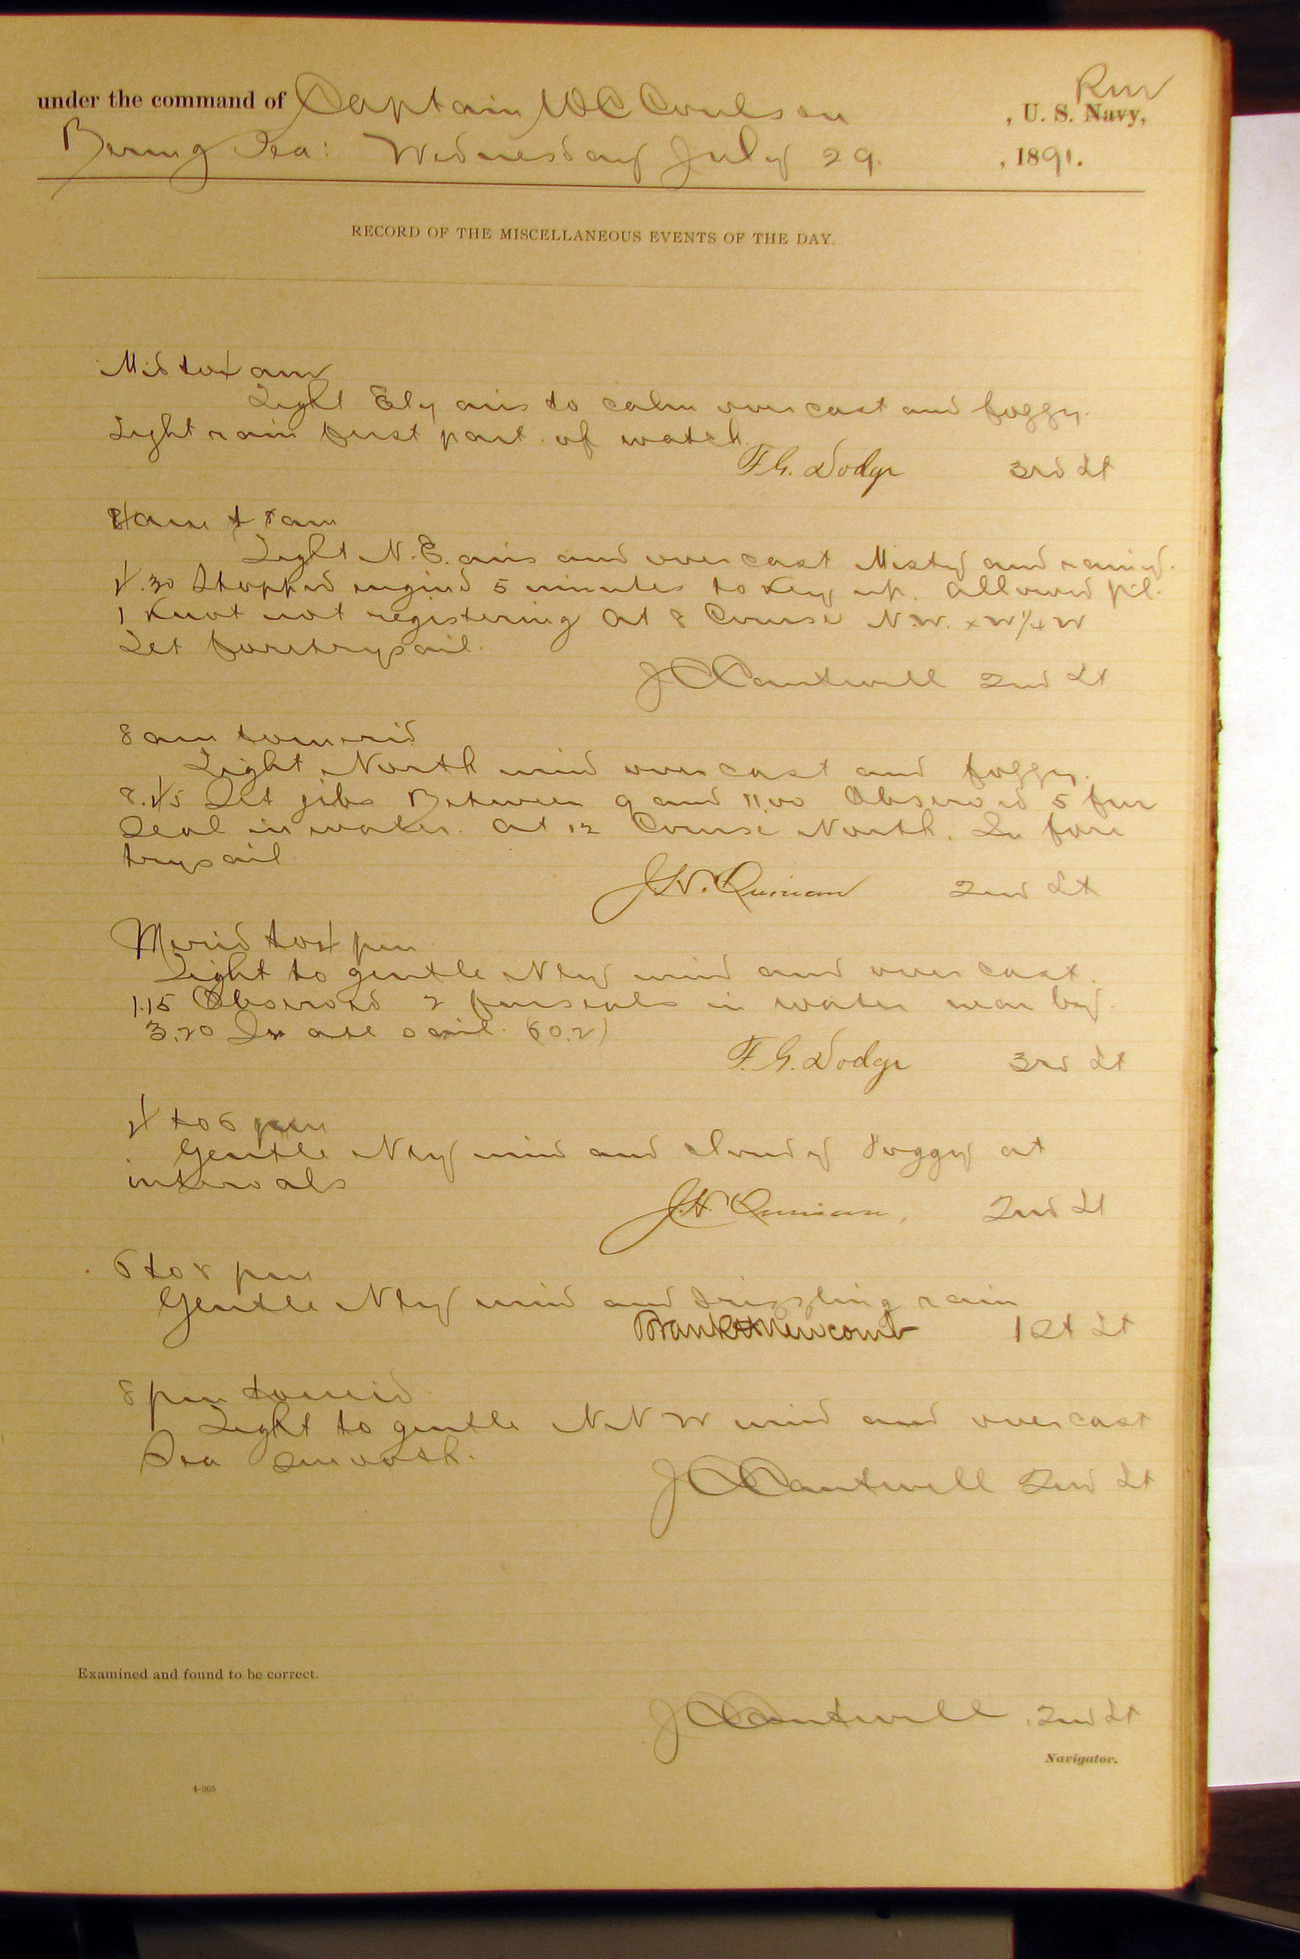 under the command of Captain W C Coulson, U. S. Navy, Rm
Bering Sea: Wednesday July 29, 1891.
RECORD OF THE MISCELLANEOUS EVENTS OF THE DAY.
Mid to 4 am
Light Ely airs to calm overcast and foggy.
Light rain first part of watch.
F. G. Dodge 3rd Lt
4 am to 8 am
Light N.E. airs and overcast Misty and rainy.
4.30 Stopped engine 5 minutes to key up. Allowed p'l.
1 Knot not registering At 8 Course N W. x W 1/4 W
Set foretrysail.
J C Cantwell 2nd Lt
8 am to merid
Light North wind overcast and foggy.
8.45 Set jibs Between 9 and 11.00 Observed 5 fur
Seal in water. At 12 Course North. In fore
trysail
J. H. Quinan 2nd Lt
Merid to 4 pm
Light to gentle Nly wind and overcast.
1.15 Observed 2 fur seals in water near by.
3.20 In all sail. (60.2)
F. G. Dodge 3rd Lt
4 to 6 pm
Gentle Nly wind and cloudy Foggy at
intervals
J. H. Quinan, 2nd Lt
6 to 8 pm
Gentle Nly wind and drizzling rain
Frank H Newcomb 1st Lt
8 pm to mid
Light to gentle N N W wind and overcast
Sea smooth.
J C Cantwell 2nd Lt
Examined and found to be correct.
J C Cantwell, 2nd Lt
Navigator.
4-265